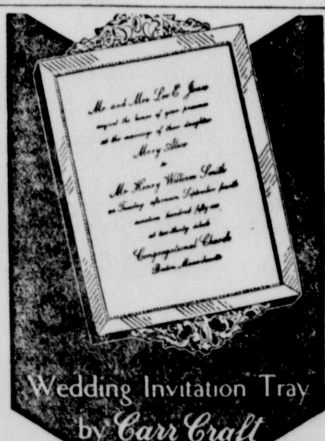 Mr. and Mrs. Lee E. Jones
request the honor of your presence
at the marriage of their daughter
Mary Alice
to
Mr. Henry William Smith
on Tuesday afternoon September fourth
nineteen hundred fifty-one
at two-thirty o'clock
Congregational Church
Boston Massachusetts
Wedding Invitation Tray
by Carr Craft